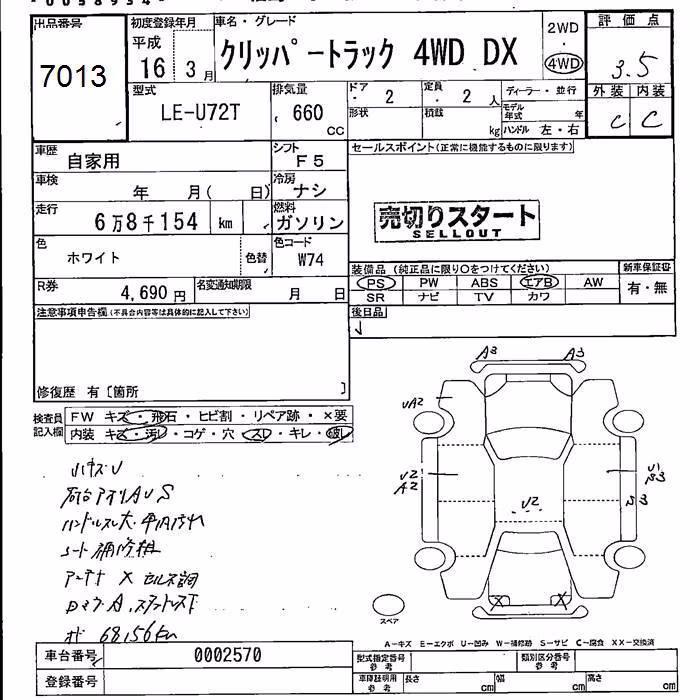 出品番号
7013
初度登録年月
平成
16 3月
車名・グレード
クリッパートラック 4WD DX
2WD
・
4WD
評価点
3.5
外装 内装
C C
型式
LE-U72T
排気量
660
CC
ドア
・ 2
定員
・ 2 人
形状
積載
kg
ディーラー・並行
モデル年式 年
ハンドル 左・右
車歴
自家用
シフト
F5
セールスポイント(正常に機能するものに限ります)
車検
年 月( 日)
冷房
ナシ
走行
6万8千154 km
燃料
ガソリン
売切りスタート
SELLOUT
色
ホワイト
色替
色コード
W74
装備品 (純正品に限り○をつけてください)
新車保証書
PS PW ABS エアB AW
SR ナビ TV カワ
有・無
R券
4,690円
名変通知期限
月 日
後日品
注意事項申告欄(不具合内容等は具体的に記入して下さい)
修復歴 有〔箇所 〕
検査員
記入欄
FW キズ・飛石・ヒビ割・リペア跡・×要
内装 キズ・汚レ・コゲ・穴・スレ・キレ・破レ
ハンドルスレ大
シート補修粗
68,156km
A3
A3
UA2
U2
A2
U2
スペア
A―キズ E―エクボ U―凹み W―補修跡 S―サビ C―腐食 XX―交換済
車台番号
0002570
登録番号
型式指定番号
参考
類別区分番号
参考
車庫証明用
参考
長さ cm
幅 cm
高さ cm